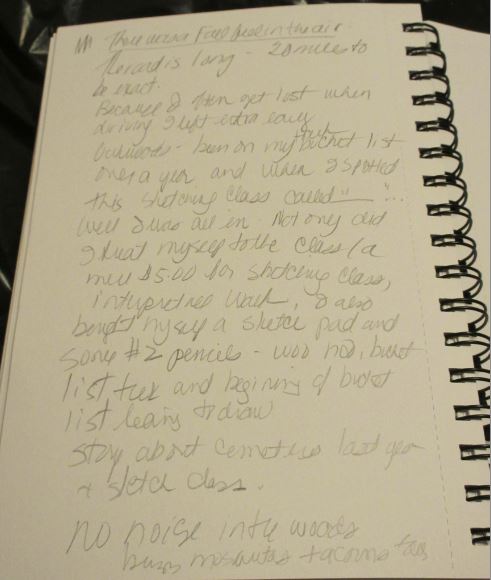 There was a Fall feel in the air.
The road is long - 20 miles to
be exact.
Because I often get lost when
driving I left extra early
- been on my bucket list
over a year and when I spotted
this sketching class called "___"...
well I was all in. Not only did
I treat myself to the class (a
mere $5.00 for sketching class,
interpretive walk, I also
bought myself a sketch pad and
some #2 pencils - woo hoo, bucket
list, and beginning of bucket
list, learing to draw
story about cemeteries last year
+ sketch class.
NO noise in the woods
mosquitos + acorns